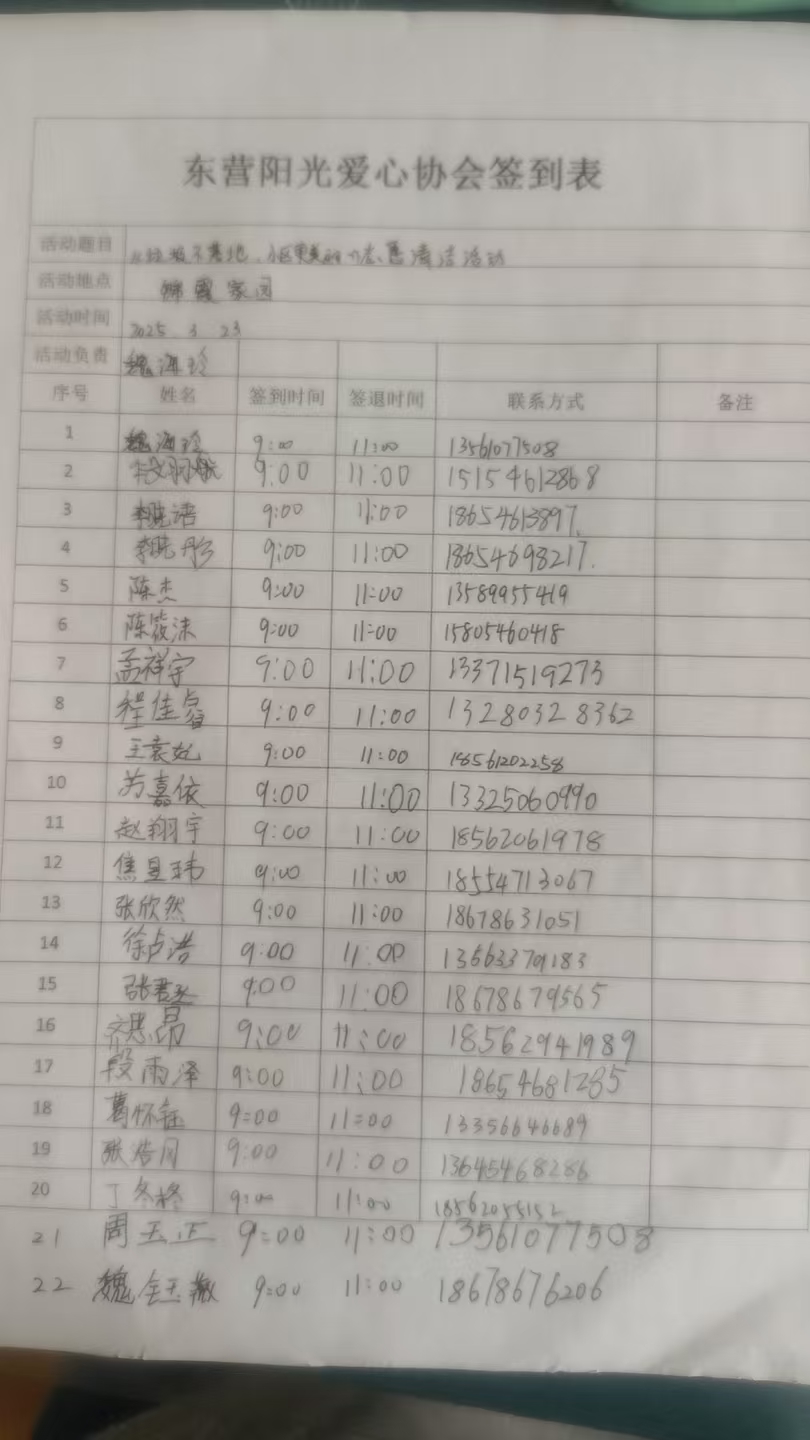 东营阳光爱心协会签到表
活动题目 "垃圾不落地,小区更美丽"志愿清洁活动
活动地点 锦霞家园
活动时间 2025 3 23
活动负责 魏海玲
序号 姓名 签到时间 签退时间 联系方式 备注
1 魏海玲 9:00 11:00 13561077508
2 段羽航 9:00 11:00 15154612868
3 李晓语 9:00 11:00 18654613897.
4 李晓彤 9:00 11:00 18654698217.
5 陈杰 9:00 11:00 13589955419
6 陈筱沫 9:00 11:00 15805460418
7 孟祥宇 9:00 11:00 13371519273
8 程佳睿 9:00 11:00 13280328362
9 王袁妃 9:00 11:00 18561202258
10 嘉依 9:00 11:00 13325060990
11 赵翔宇 9:00 11:00 18562061978
12 焦昱玮 9:00 11:00 18554713067
13 张欣然 9:00 11:00 18678631051
14 徐卢浩 9:00 11:00 13663379183
15 张君 9:00 11:00 18678679565
16 齐思昂 9:00 11:00 18562941989
17 段雨泽 9:00 11:00 18654681285
18 葛怀钰 9:00 11:00 13356646689
19 张浩月 9:00 11:00 13645468286
20 丁冬柊 9:00 11:00 18562055152
21 周玉正 9:00 11:00 13561077508
22 魏钰薇 9:00 11:00 18678676206